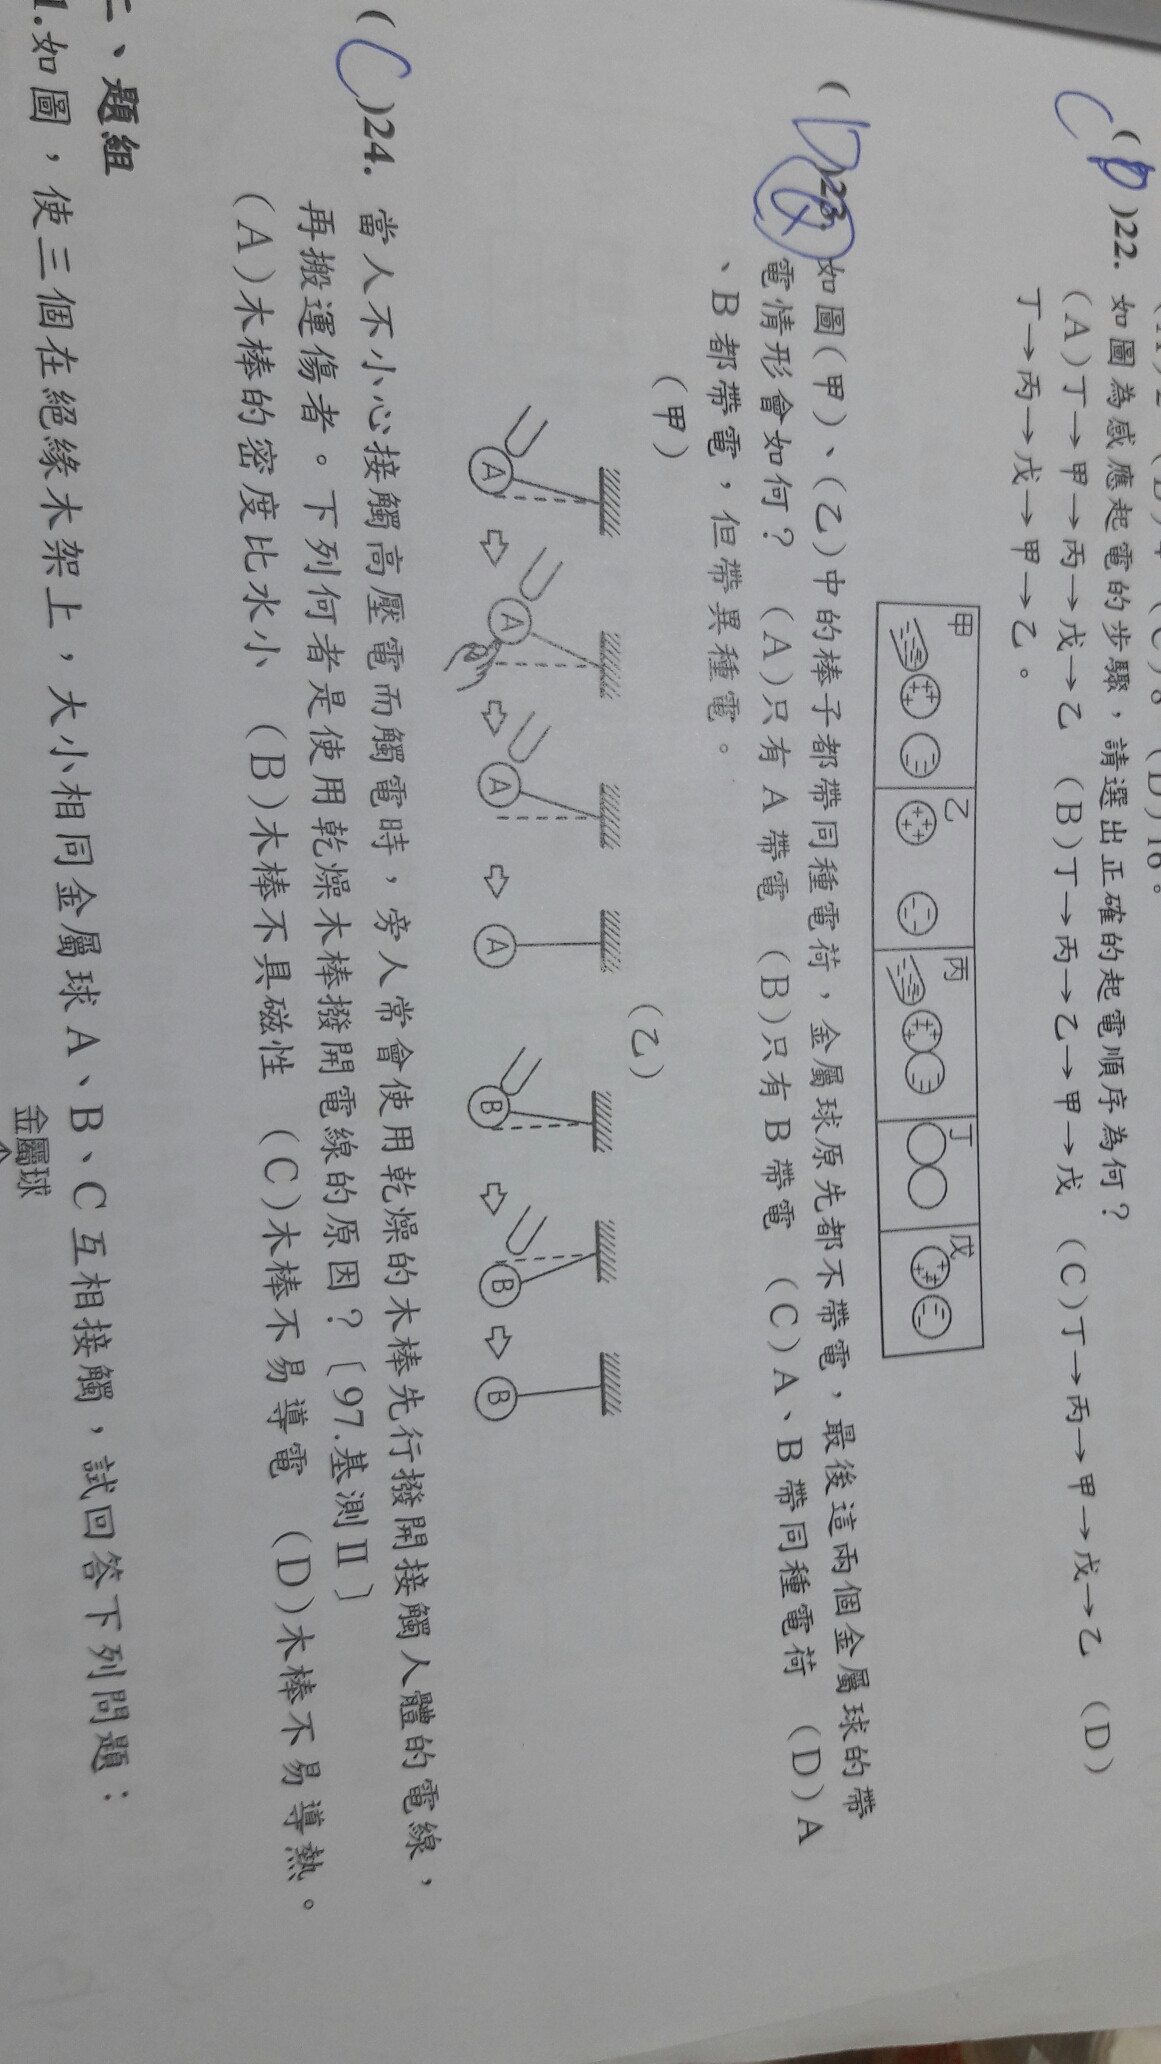 16。
(D)22. 如圖為感應起電的步驟，請選出正確的起電順序為何？
C
(A)丁→甲→丙→戊→乙 (B)丁→丙→乙→甲→戊 (C)丁→丙→甲→戊→乙 (D)
丁→丙→戊→甲→乙。
甲 乙 丙 丁 戊
(D)23. 如圖(甲)、(乙)中的棒子都帶同種電荷，金屬球原先都不帶電，最後這兩個金屬球的帶
電情形會如何？ (A)只有A帶電 (B)只有B帶電 (C)A、B帶同種電荷 (D)A
、B都帶電，但帶異種電。
(甲) (乙)
A A A A B B B
(C)24. 當人不小心接觸高壓電而觸電時，旁人常會使用乾燥的木棒先行撥開接觸人體的電線，
再搬運傷者。下列何者是使用乾燥木棒撥開電線的原因？〔97.基測II〕
(A)木棒的密度比水小 (B)木棒不具磁性 (C)木棒不易導電 (D)木棒不易導熱。
二、題組
1.如圖，使三個在絕緣木架上，大小相同金屬球A、B、C互相接觸，試回答下列問題：
金屬球